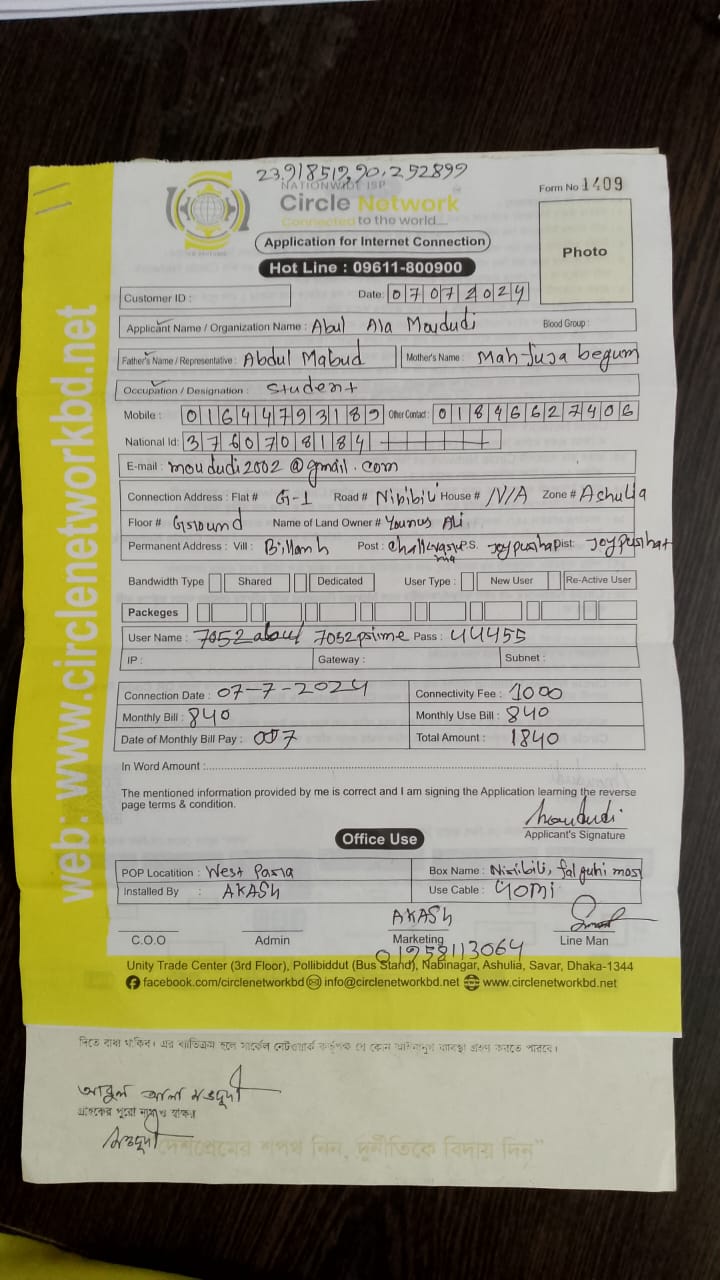 23.918519,90.252899
NATIONWIDE ISP
Circle Network
Connected to the world....
Form No 1409
Application for Internet Connection
Photo
Hot Line : 09611-800900
Customer ID :
Date: 07072024
Applicant Name / Organization Name : Abul Ala Moududi Blood Group :
Father's Name / Representative : Abdul Mabud Mother's Name : Mahfuja begum
Occupation / Designation : Student
Mobile : 01644793189 Other Contact : 01846627406
National Id: 3760708184
E-mail : moududi2002@gmail.com
Connection Address : Flat # G-1 Road # Niribili House # N/A Zone # Ashulia
Floor # Ground Name of Land Owner # Younus Ali
Permanent Address : Vill : Post : P.S. Joypurhat Dist: Joypurhat
Bandwidth Type Shared Dedicated User Type : New User Re-Active User
Packeges
User Name : 7052abul 7052prime Pass : 44455
IP : Gateway : Subnet :
Connection Date : 07-7-2024 Connectivity Fee : 1000
Monthly Bill : 840 Monthly Use Bill : 840
Date of Monthly Bill Pay : 007 Total Amount : 1840
In Word Amount :
The mentioned information provided by me is correct and I am signing the Application learning the reverse
page terms & condition.
Moududi
Applicant's Signature
Office Use
POP Locatition : West Para Box Name : Niribili, falguni mos
Installed By : AKASH Use Cable : 40mi
AKASH
C.O.O Admin Marketing Line Man
01958113064
Unity Trade Center (3rd Floor), Pollibiddut (Bus Stand), Nabinagar, Ashulia, Savar, Dhaka-1344
facebook.com/circlenetworkbd info@circlenetworkbd.net www.circlenetworkbd.net
web: www.circlenetworkbd.net
দিতে বাধ্য থাকিব। এর ব্যতিক্রম হলে সার্কেল নেটওয়ার্ক কর্তৃপক্ষ যে কোন আইনানুগ ব্যবস্থা গ্রহণ করতে পারবে।
আবুল আলা মওদুদী
গ্রাহকের পুরো নাম ও স্বাক্ষর
মওদুদী
দেশপ্রেমের শপথ নিন, দুর্নীতিকে বিদায় দিন"